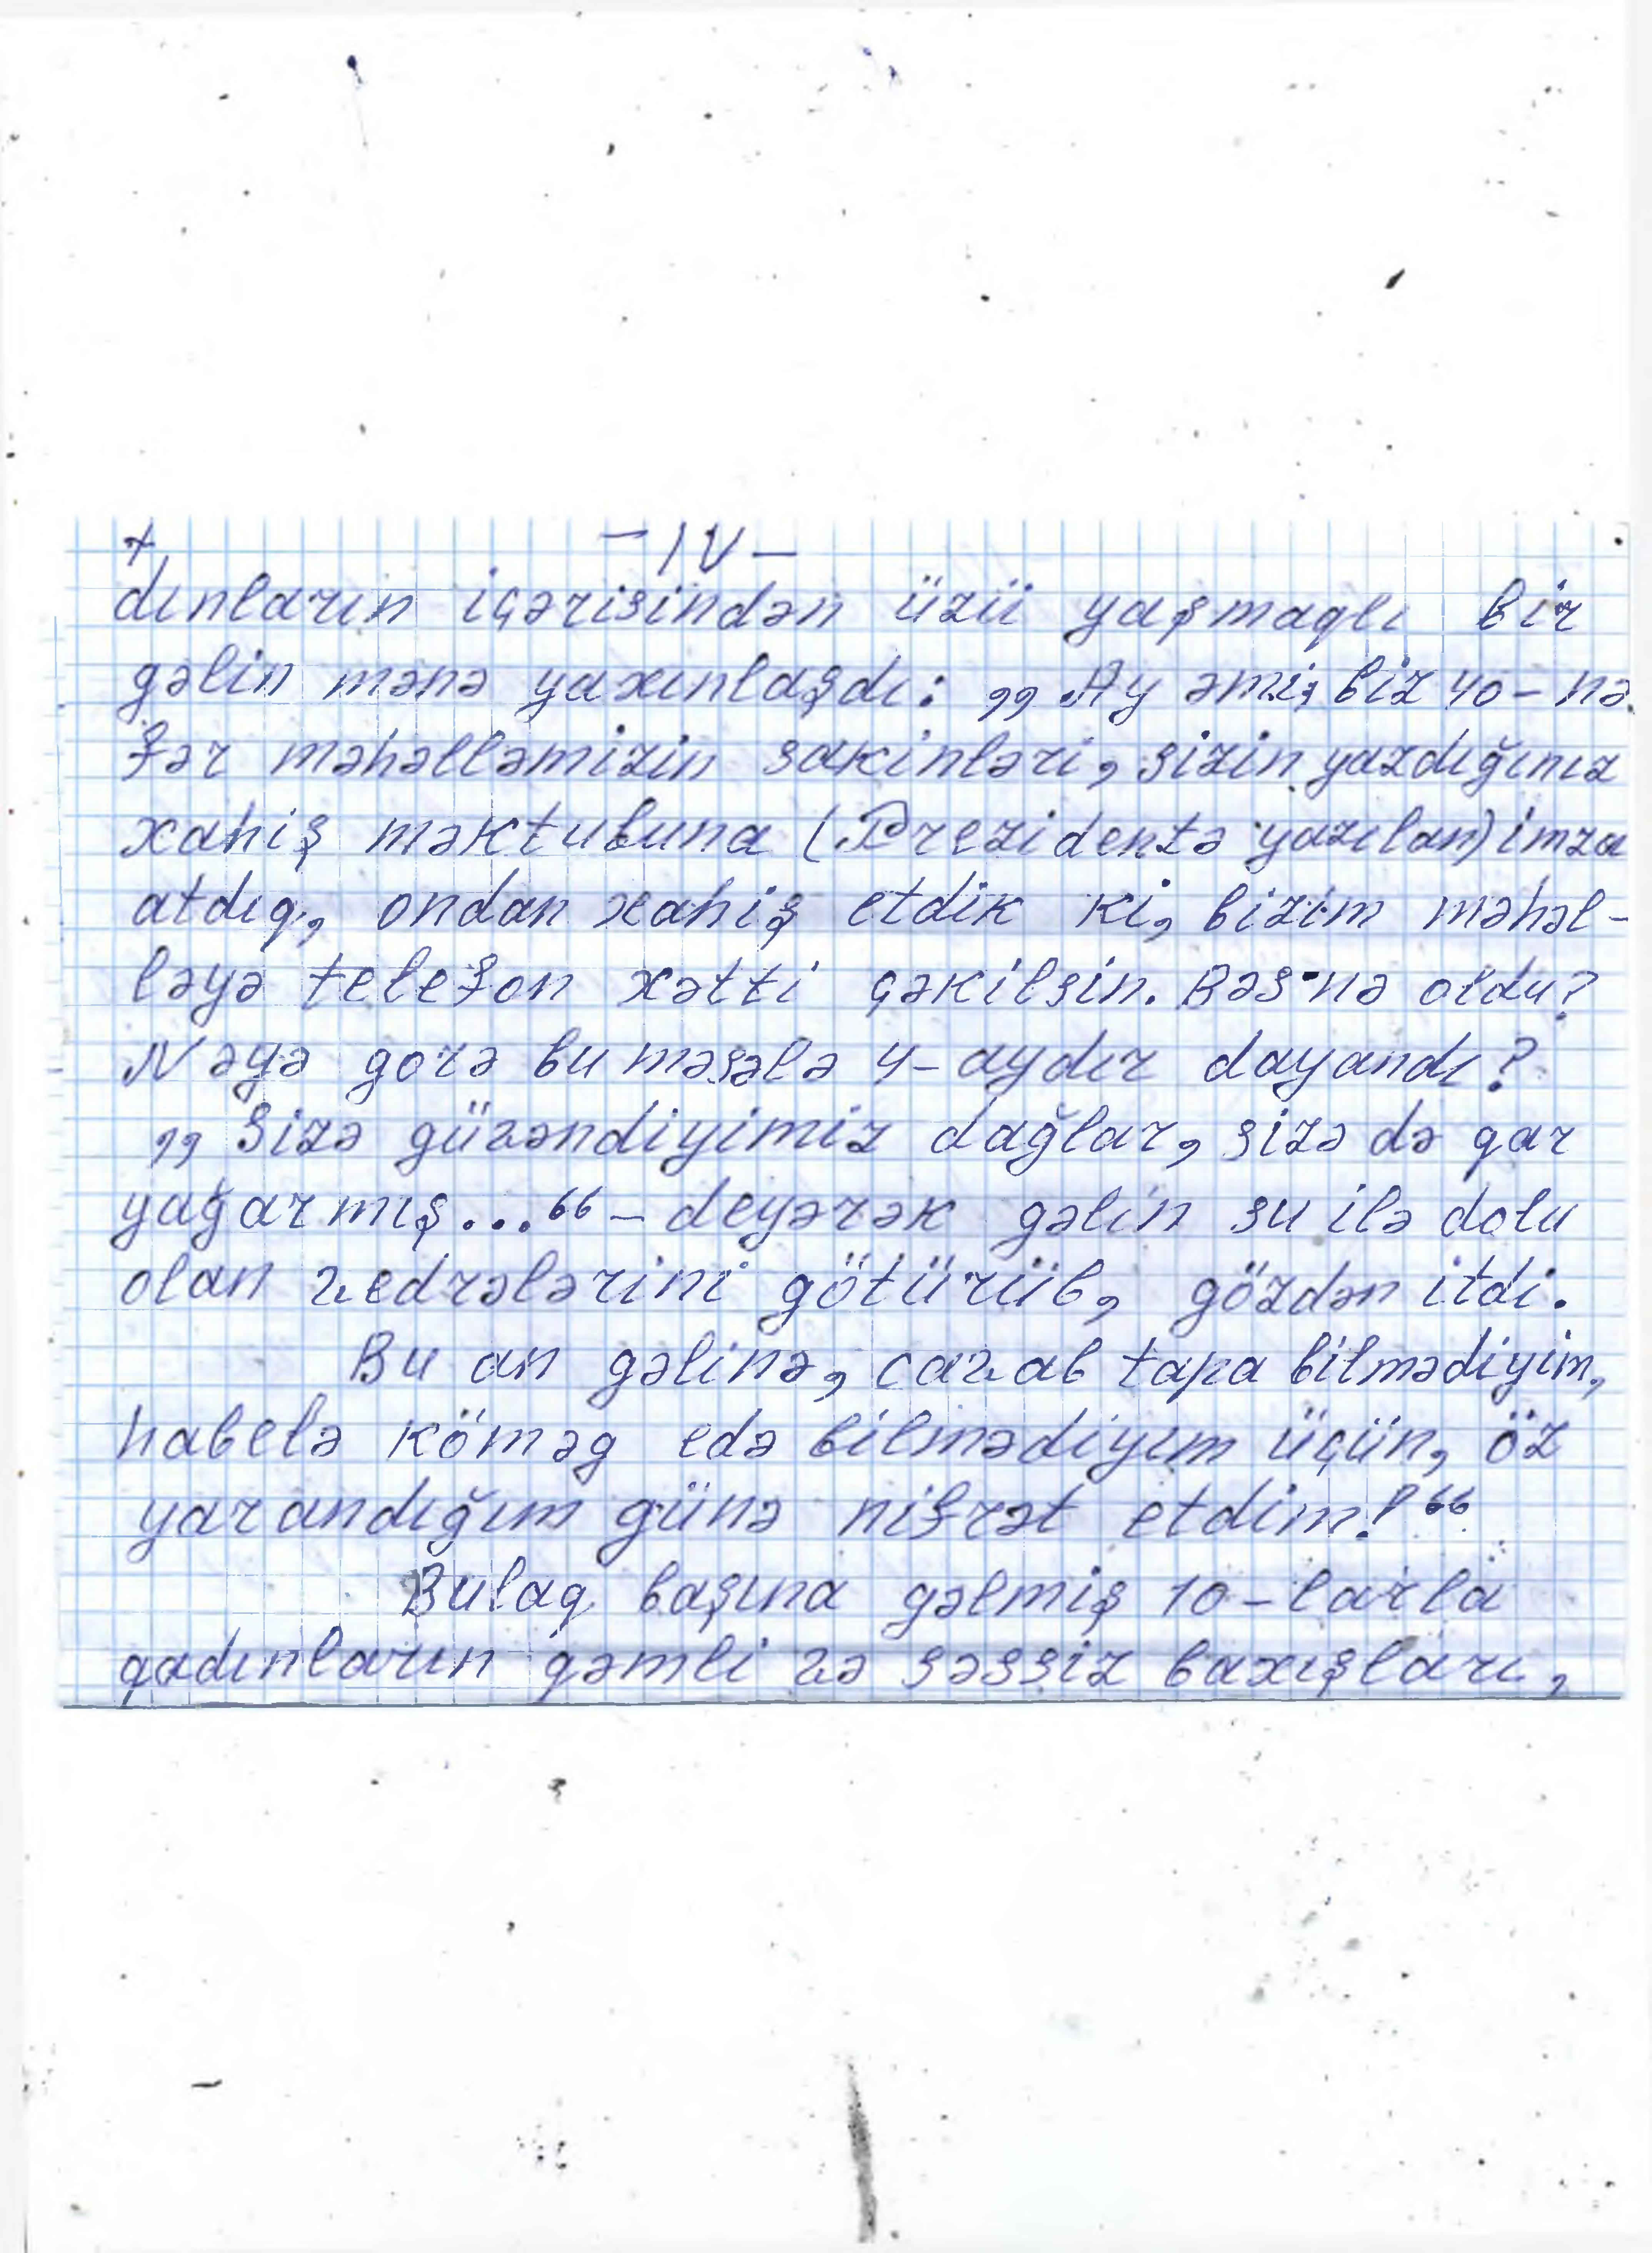 + – IV –
dınların içərisindən üzü yaşmaqlı bir
gəlin mənə yaxınlaşdı: ,, Ay əmi; biz 40 – nə-
fər məhəlləmizin sakinləri, sizin yazdığınız
xahiş məktubuna (Prezidentə yazılan) imza
atdıq, ondan xahiş etdik ki, bizim məhəl-
ləyə telefon xətti çəkilsin. Bəs nə oldu?
Nəyə gorə bu məsələ 4 – aydır dayandı?
,, Sizə güvəndiyimiz dağlar, sizə də qar
yağarmış...“ – deyərək gəlin su ilə dolu
olan vedrələrini götürüb, gözdən itdi.
Bu an gəlinə, cavab tapa bilmədiyim,
habelə köməg edə bilmədiyim üçün, öz
yarandığım günə nifrət etdim!“
Bulaq başına gəlmiş 10 – larla
qadınların qəmli və səssiz baxışları,